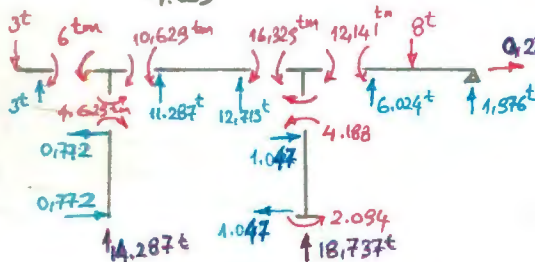 3ᵗ 6ᵗᵐ 10,629ᵗᵐ 16,325ᵗᵐ 12,141ᵗᵐ 8ᵗ 0,2
3ᵗ 4.629ᵗᵐ 11.287ᵗ 12,713ᵗ 4.188 6.024ᵗ 1,976ᵗ
0,772 1.047
0,772 1.047 2.094
14.287ᵗ 18,737ᵗ